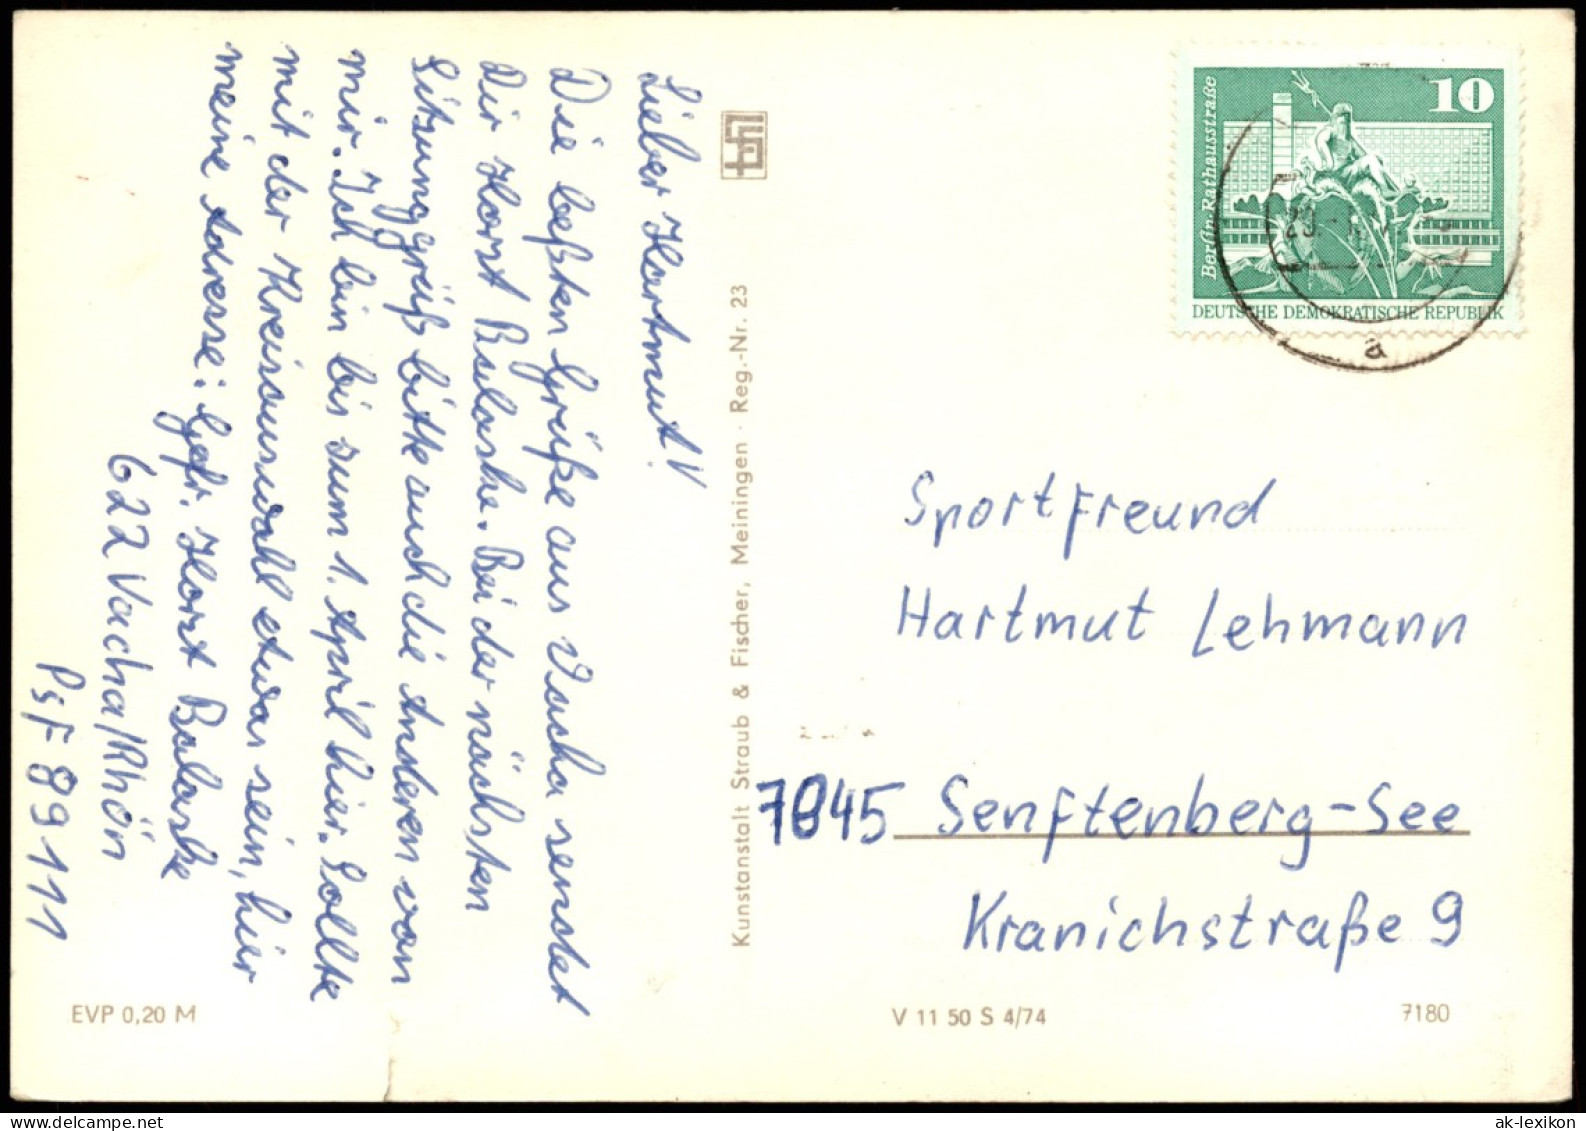 Lieber Hartmut!
Die beßten Grüße aus Vacha sendet
Dir Horst Balaske. Bei der nächsten
Sitzung grüß bitte auch die Anderen von
mir. Ich bin bis zum 1. April hier. Sollte
mit der Kreisauswahl etwas sein, hier
meine Adresse: Gefr. Horst Balaske
622 Vacha/Rhön
PsF 89111
EVP 0,20 M
Kunstanstalt Straub & Fischer, Meiningen · Reg.-Nr. 23
10
Berlin-Rathausstraße
DEUTSCHE DEMOKRATISCHE REPUBLIK
a
Sportfreund
Hartmut Lehmann
7845 Senftenberg-See
Kranichstraße 9
V 11 50 S 4/74
7180
ak-lexikon.com